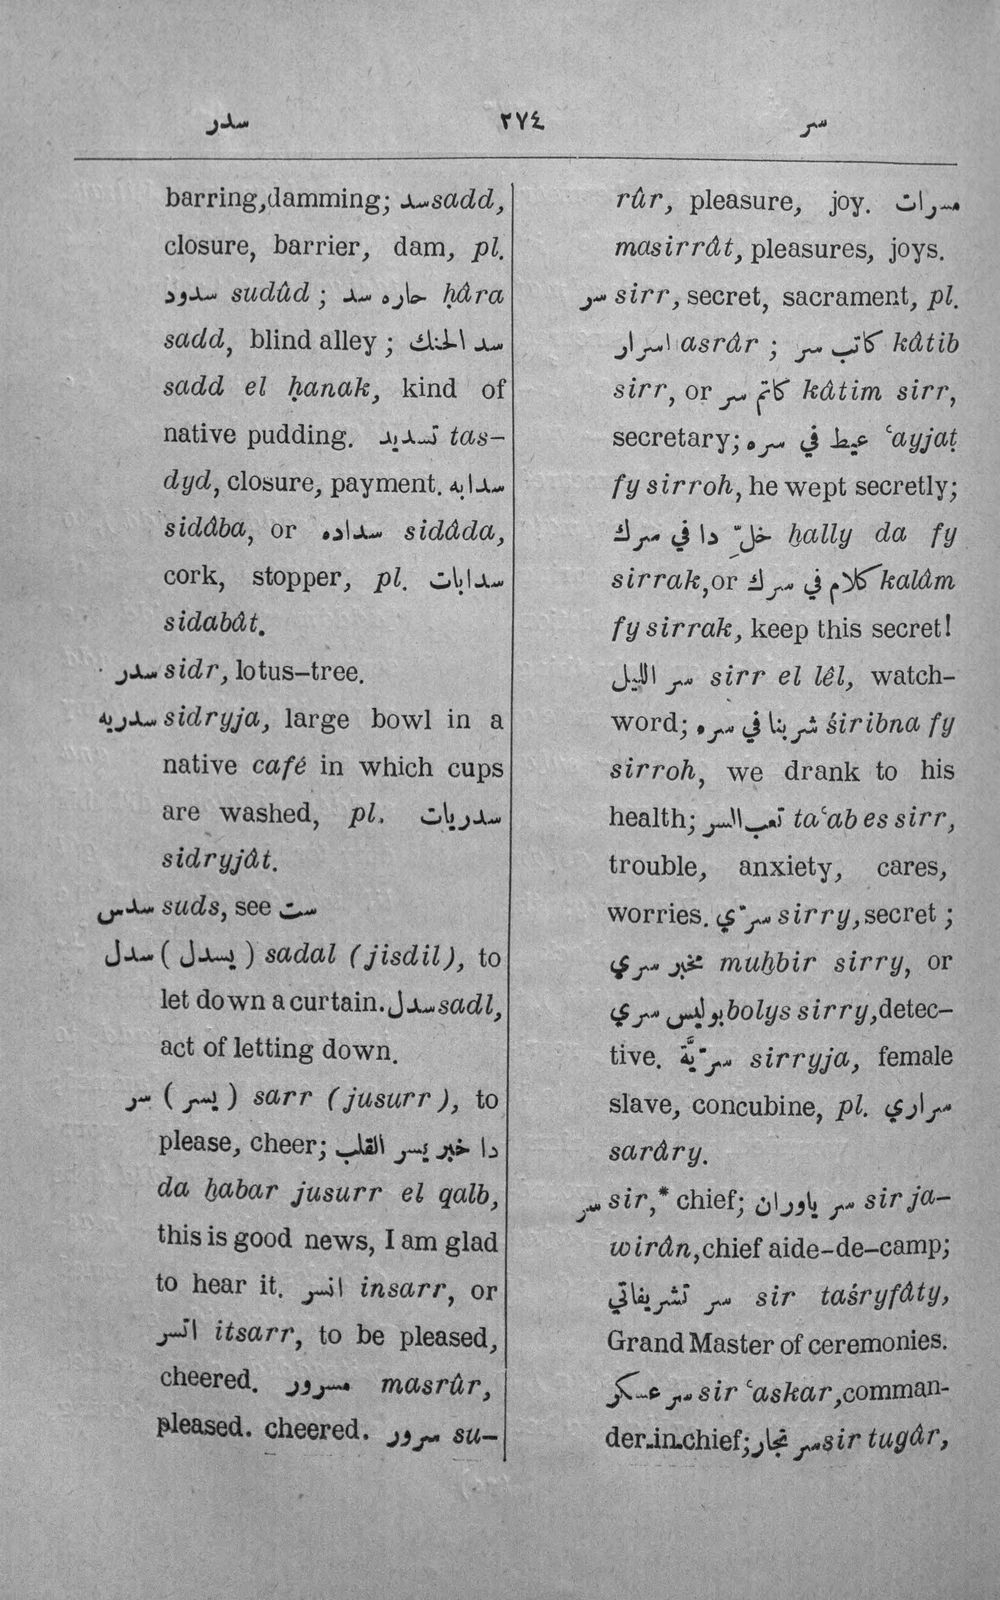 سدر ٢٧٤ سر
barring, damming; سد sadd,
closure, barrier, dam, pl.
سدود sudûd ; حاره سد ḥâra
sadd, blind alley ; سد الحنك
sadd el ḥanak, kind of
native pudding. تسديد tas-
dyd, closure, payment. سدابه
sidâba, or سداده sidâda,
cork, stopper, pl. سدابات
sidabât.
سدر sidr, lotus-tree.
سدريه sidryja, large bowl in a
native café in which cups
are washed, pl. سدريات
sidryjât.
سدس suds, see ست
سدل ( يسدل ) sadal (jisdil), to
let down a curtain. سدل sadl,
act of letting down.
سر ( يسر ) sarr (jusurr), to
please, cheer; دا خبر يسر القلب
da ḫabar jusurr el qalb,
this is good news, I am glad
to hear it. انسر insarr, or
اتسر itsarr, to be pleased,
cheered. مسرور masrûr,
pleased. cheered. سرور su-
rûr, pleasure, joy. مسرات
masirrât, pleasures, joys.
سر sirr, secret, sacrament, pl.
اسرار asrâr ; كاتب سر kâtib
sirr, or كاتم سر kâtim sirr,
secretary; عيط في سره ʿayjaṭ
fy sirroh, he wept secretly;
خلِّ دا في سرك ḫally da fy
sirrak, or كلام في سرك kalâm
fy sirrak, keep this secret!
سر الليل sirr el lêl, watch-
word; شربنا في سره śiribna fy
sirroh, we drank to his
health; تعب السر taʿab es sirr,
trouble, anxiety, cares,
worries. سرّي sirry, secret ;
مخبر سري muḫbir sirry, or
بوليس سري bolys sirry, detec-
tive. سرّيَّة sirryja, female
slave, concubine, pl. سراري
sarâry.
سر sir,* chief; سر ياوران sir ja-
wirân, chief aide-de-camp;
سر تشريفاتي sir taśryfâty,
Grand Master of ceremonies.
سر عسكر sir ʿaskar, comman-
der-in-chief; سر تجار sir tugâr,